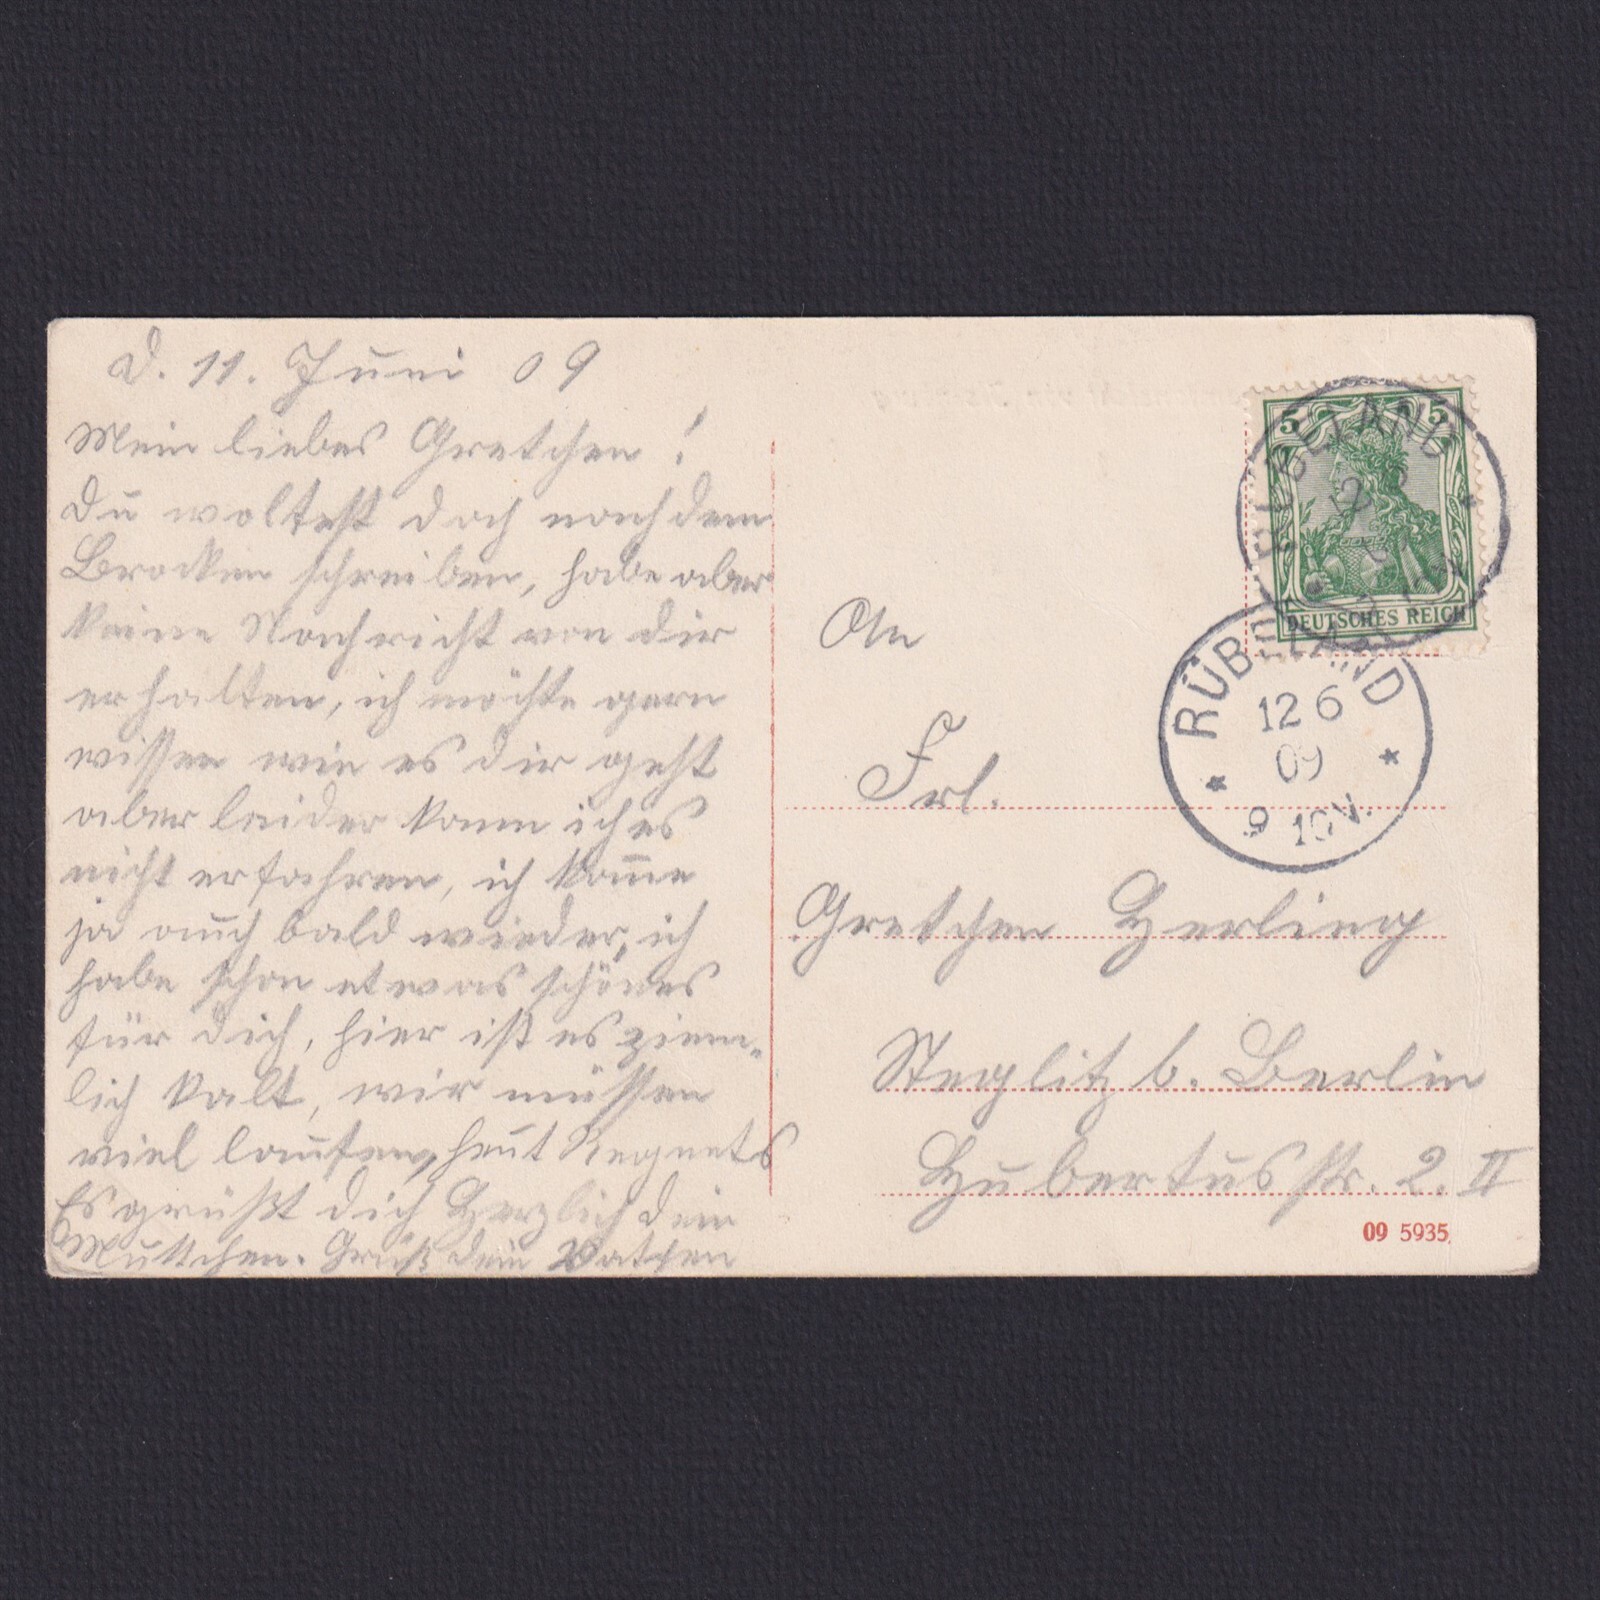 D. 11. Juni 09
Mein liebes Gretchen!
Du woltest doch nach dem
Brocken schreiben, habe aber
keine Nachricht von dir
erhalten, ich möchte gern
wissen wie es dir geht
aber leider kann ich es
nicht erfahren, ich kom̄e
ja auch bald wieder, ich
habe schon etwas schönes
für dich, hier ist es ziem-
lich kalt, wir müssen
viel laufen, heut Regnets
Es grüßt dich Herzlich dein
Muttchen. Grüß dein Vatchen
5 5
DEUTSCHES REICH
RÜBELAND
RÜBELAND
12 6
09
9 10V.
An
Frl.
Gretchen Herling
Steglitz b. Berlin
Hubertusstr. 2. II
09 5935